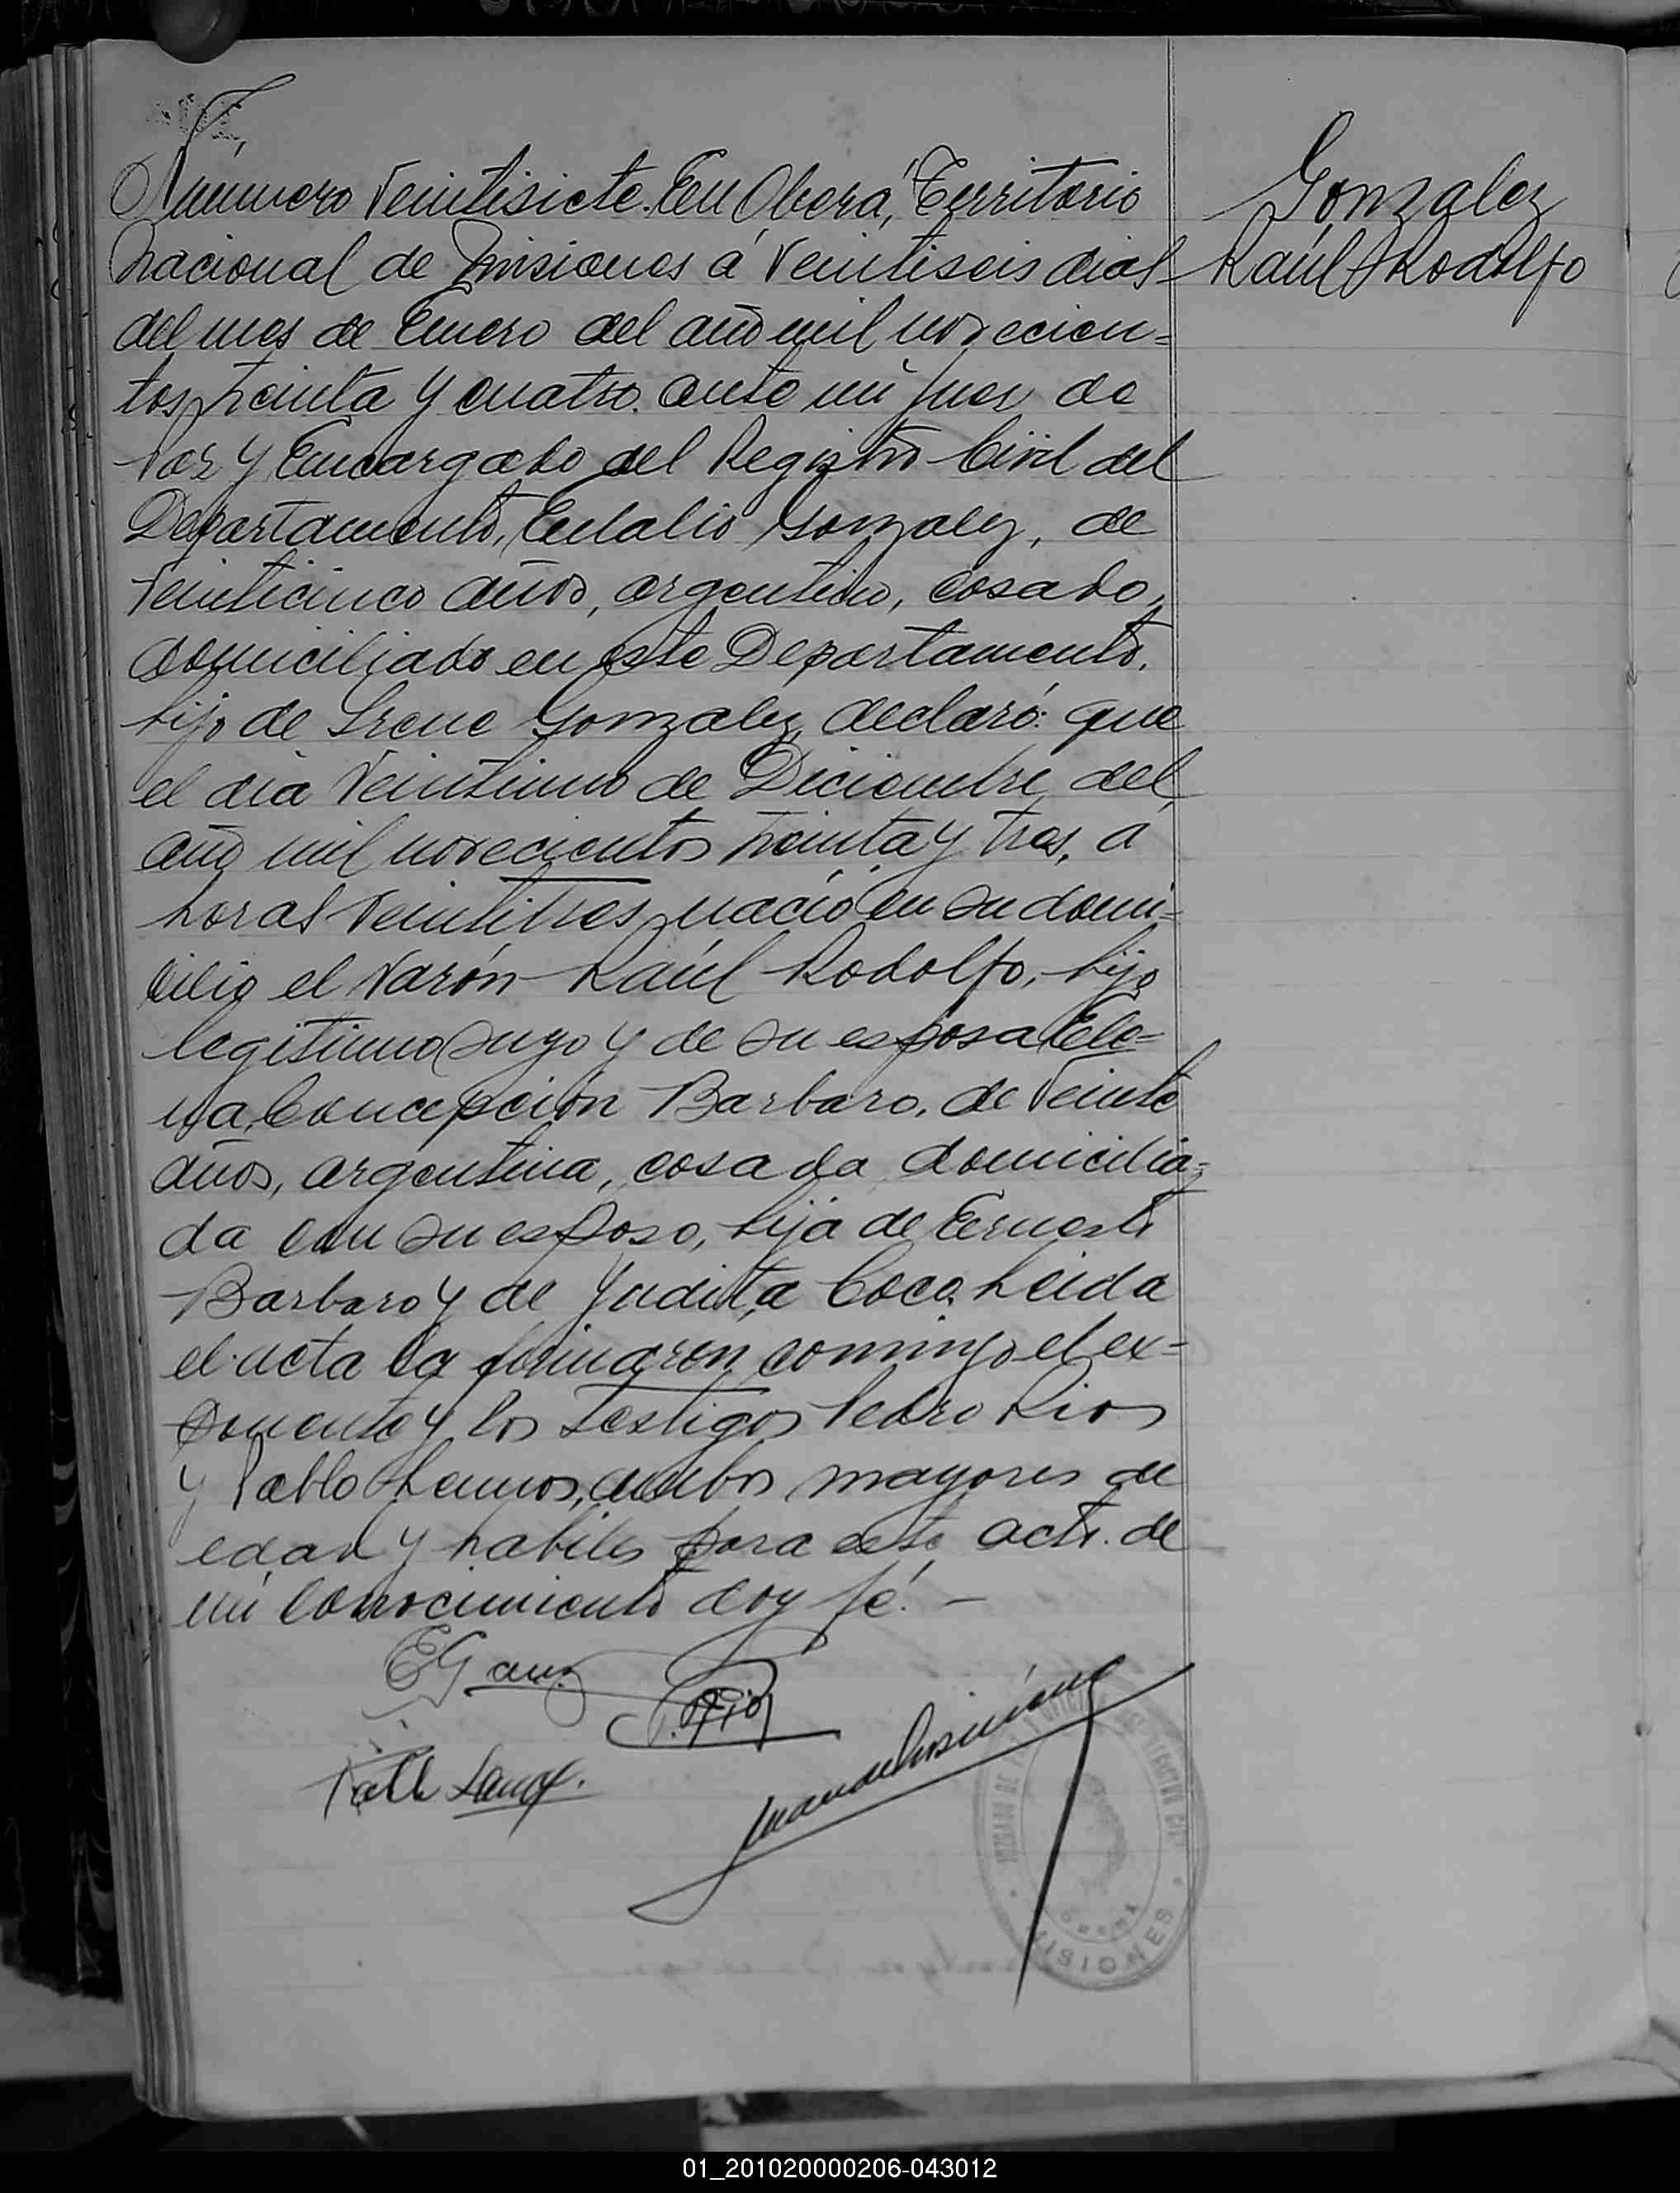 Número Veintisiete. En Oberá, Territorio
Nacional de Misiones á Veintiseis dias
del mes de Enero del año mil novecien=
tos treinta y cuatro. ante mi Juez de
Paz y Encargado del Registro Civil del
Departamento, Eulalio Gonzalez, de
Veinticinco años, argentino, casado,
domiciliado en este Departamento,
hijo de Irene Gonzalez, declaró: que
el dia Veintiuno de Diciembre del
año mil novecientos treinta y tres, a
horas Veintitres, nació en su domi=
cilio el Varón Raúl Rodolfo, hijo
legitimo suyo y de su esposa Ele=
na Concepción Barbaro, de Veinte
años, argentina, casada domicilia=
da con su esposo, hija de Ernesto
Barbaro y de Judita Coco. Leida
el acta la firmaron conmigo el ex=
ponente y los testigos Pedro Rios
y Pablo Lemos, ambos mayores de
edad y habiles para este acto. de
mi conocimiento doy fé. —
P. Rios
MISIONES
Gonzalez
Raúl Rodolfo
01_201020000206-043012